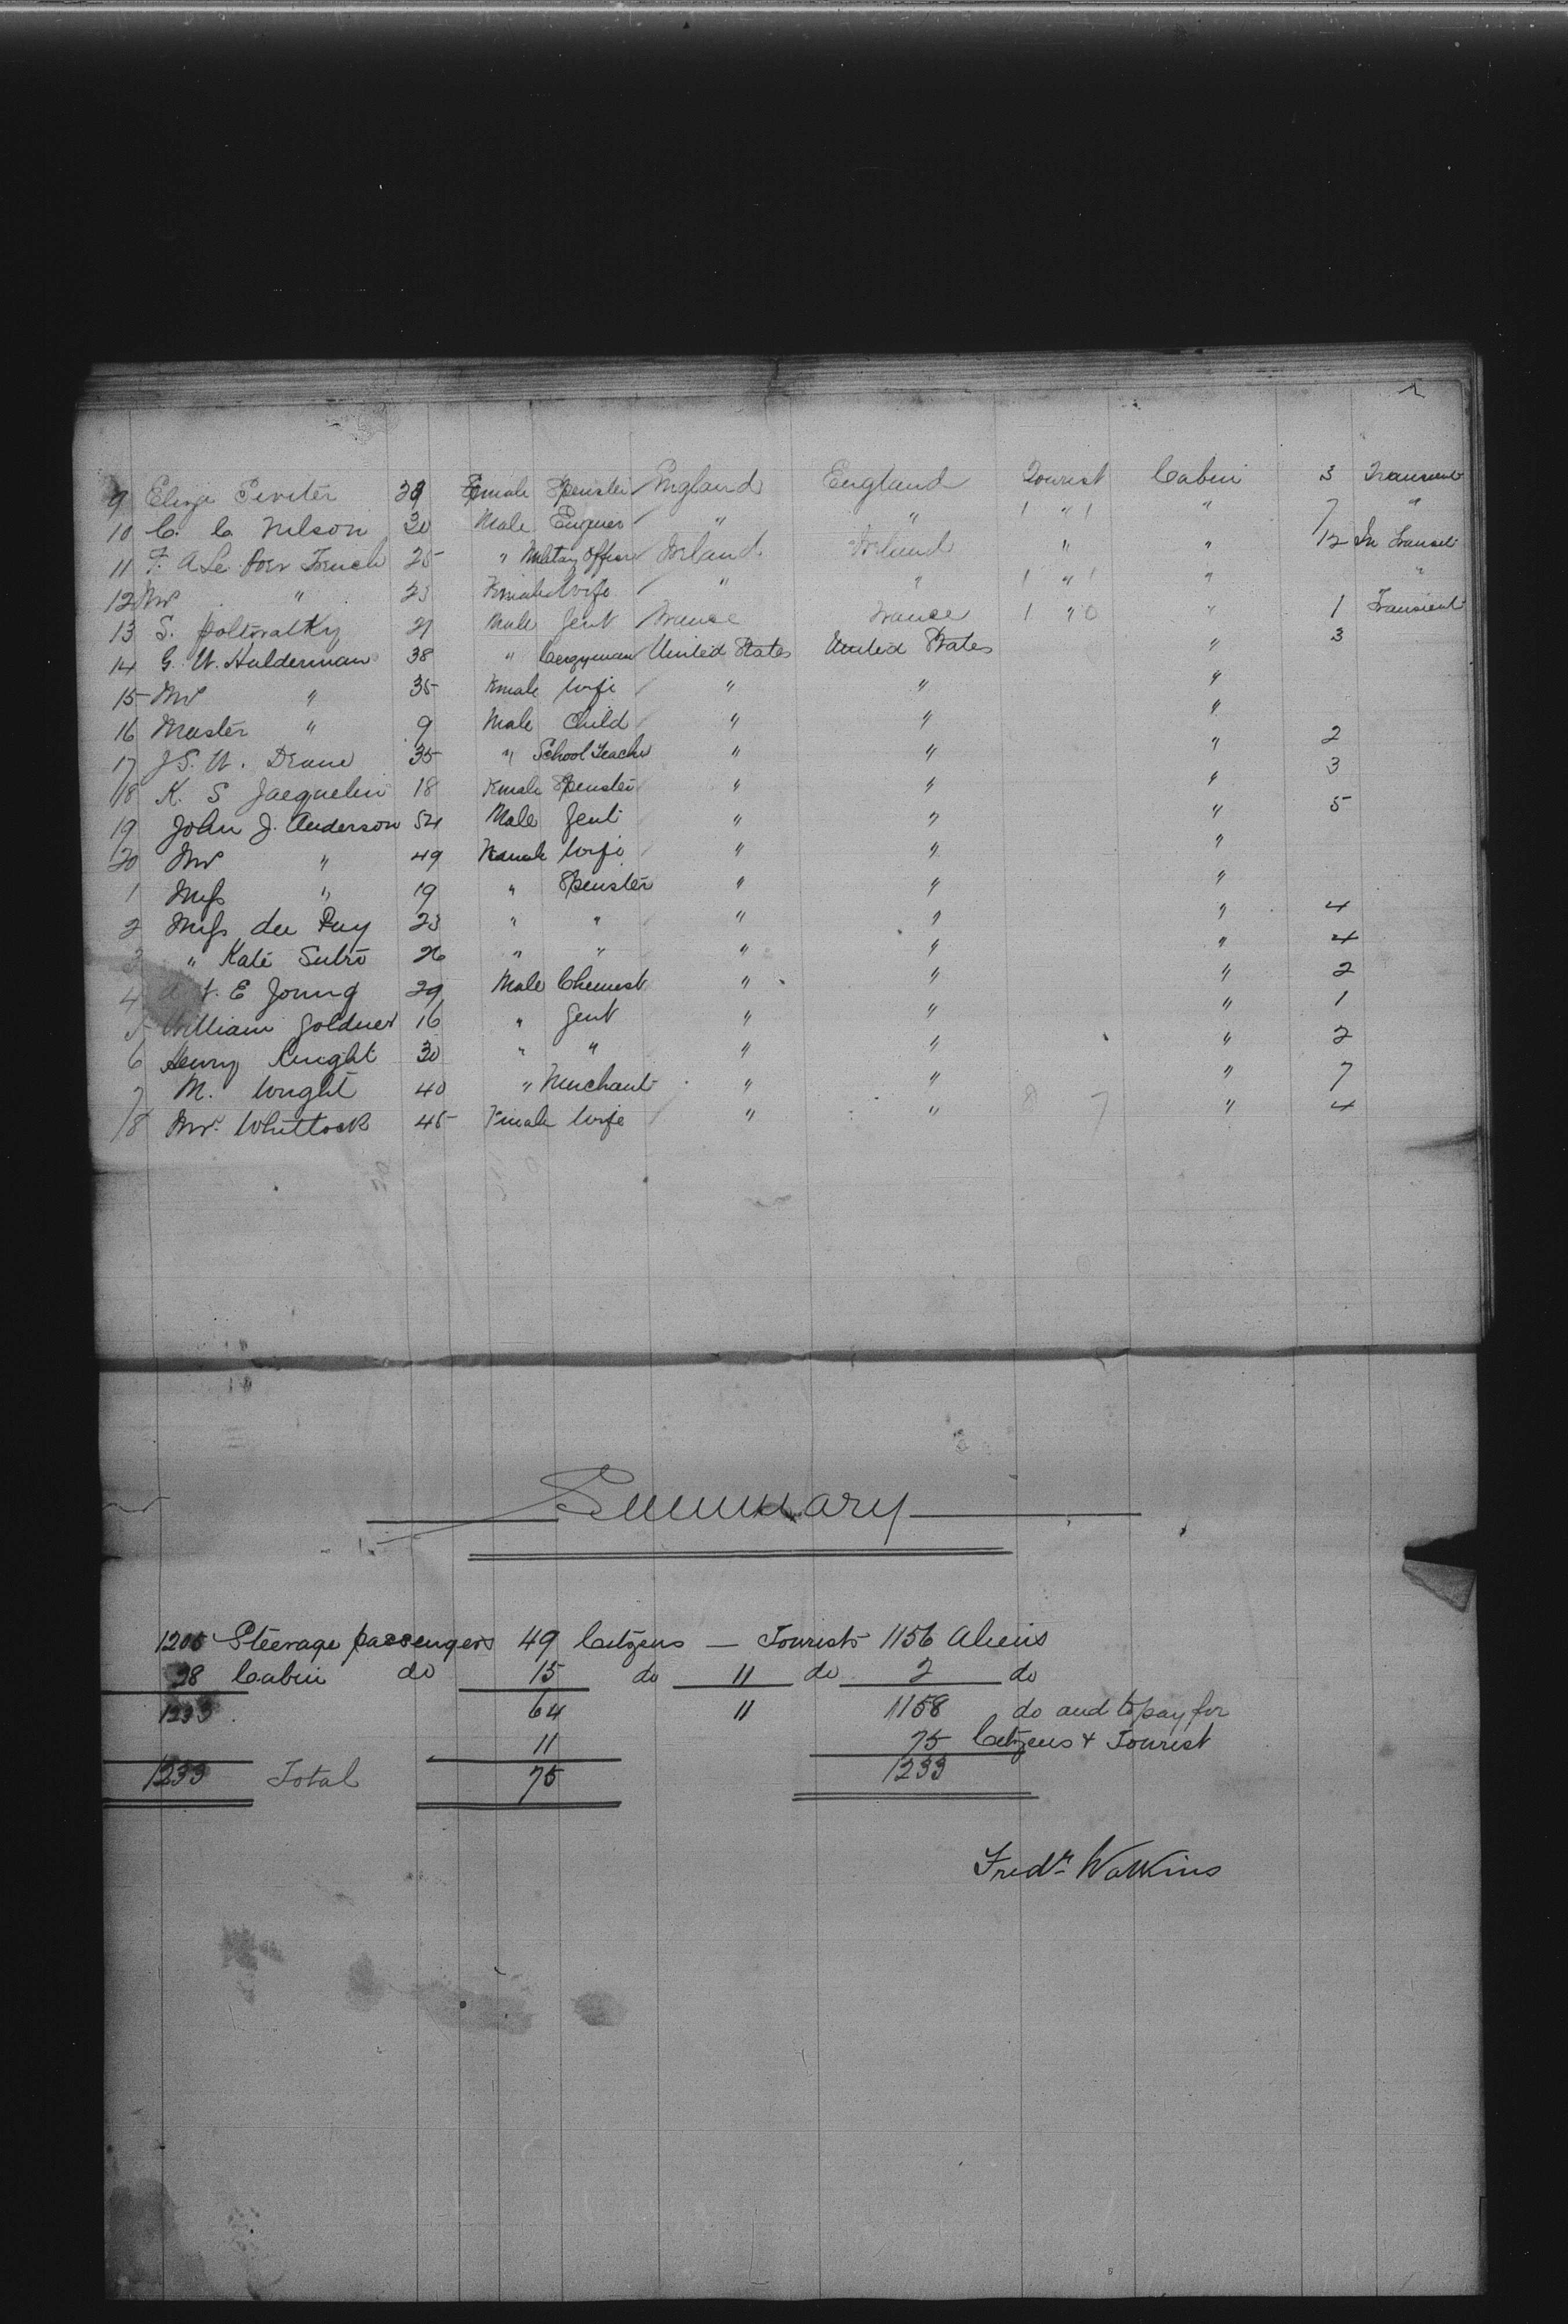 9 Eliza Peviter 39 Female Spinster England England Tourist Cabin 3 Transient
10 C. C. Nelson 30 Male Engineer " " " " 7 "
11 F. A Le Poer Trench 25 " Military Officer Ireland Ireland " " 12 In Transit
12 Mrs " 23 Female Wife " " " " "
13 S. 21 Male Gent France France " " 1 Transient
14 G. W. Halderman 38 " Clergyman United States United States " 3
15 Mrs " 35 Female Wife " " "
16 Master " 9 Male Child " " "
17 J. S. W. Deane 35 " School Teacher " " " 2
18 K. S Jacquelin 18 Female Spinster " " " 3
19 John J. Anderson 54 Male Gent " " " 5
20 Mrs " 49 Female Wife " " "
1 Miss " 19 " Spinster " " "
2 Miss du Puy 23 " " " " " 4
3 " Kate Sutro 26 " " " " " 4
4 E Young 29 Male Chemist " " " 2
5 William Goldner 16 " Gent " " " 1
6 Henry Knight 30 " " " " " 2
7 M. Wright 40 " Merchant " " " 7
8 Mrs. Whittock 45 Female Wife " " " 4
Summary
1205 Steerage passengers 49 Citizens — Tourists 1156 Aliens
28 Cabin do 15 do 11 do 2 do
1233 64 11 1158 do and to pay for
11 75 Citizens & Tourist
1233 Total 75 1233
Fredk Watkins